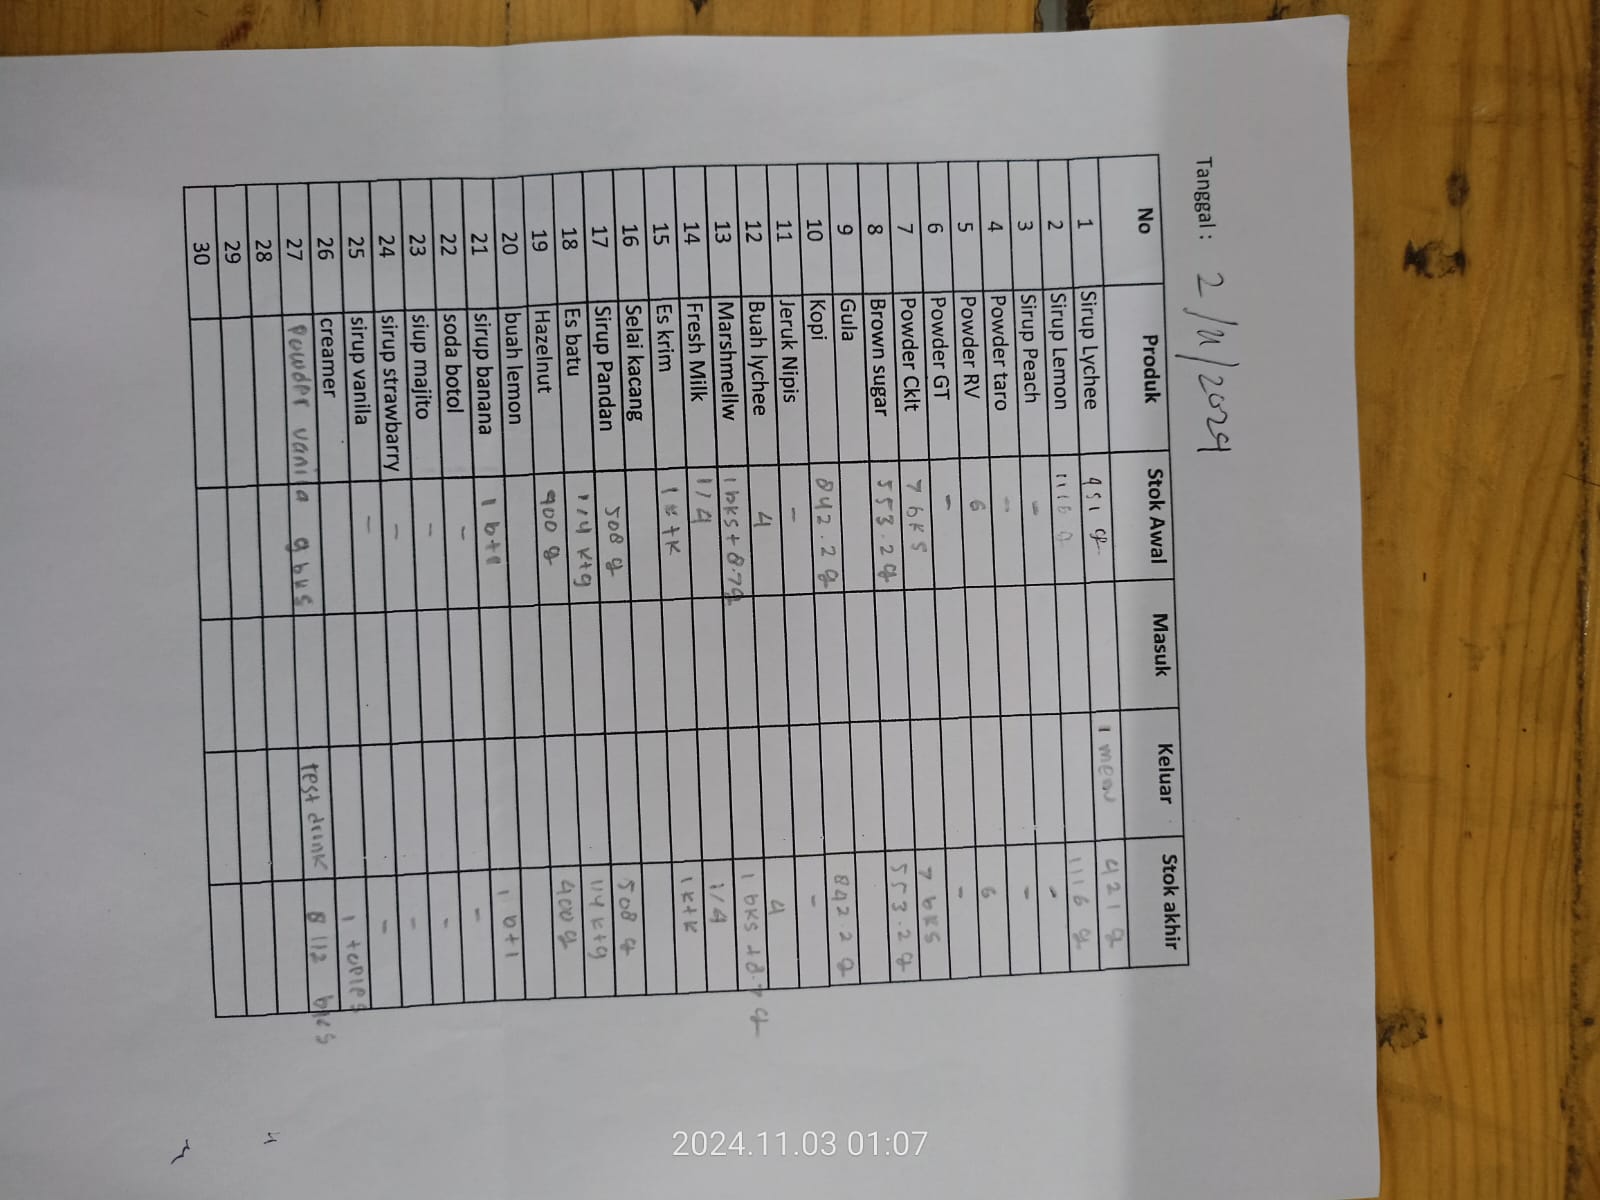 Tanggal : 2/11/2024
No Produk Stok Awal Masuk Keluar Stok akhir
1 Sirup Lychee 451 g 1 menu 421 g
2 Sirup Lemon 1116 g 1116 g
3 Sirup Peach - -
4 Powder taro - -
5 Powder RV 6 6
6 Powder GT - -
7 Powder Cklt 7 bks 7 bks
8 Brown sugar 553.2 g 553.2 g
9 Gula
10 Kopi 842.2 g 842.2 g
11 Jeruk Nipis - -
12 Buah lychee 4 4
13 Marshmellw 1 bks + 8.7 g 1 bks + 8.7 g
14 Fresh Milk 1/4 1/4
15 Es krim 1 k+k 1 k+k
16 Selai kacang
17 Sirup Pandan 508 g 508 g
18 Es batu 1/4 ktg 1/4 ktg
19 Hazelnut 400 g 400 g
20 buah lemon
21 sirup banana 1 b+1 1 b+1
22 soda botol - -
23 siup majito - -
24 sirup strawbarry - -
25 sirup vanila - -
26 creamer 1 toples
27 Powder vanila 9 bks test drink 8 1/2 bks
28
29
30
2024.11.03 01:07